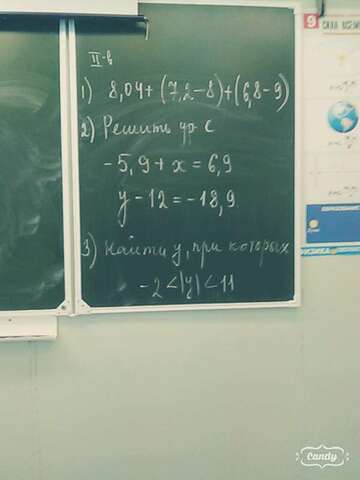 II-в
1) 8,04+(7,2-8)+(6,8-9)
2) Решить ур-е
-5,9+x=6,9
y-12=-18,9
3) Найти y, при которых
-2<|y|<11
9
ФИЗИКА
Candy